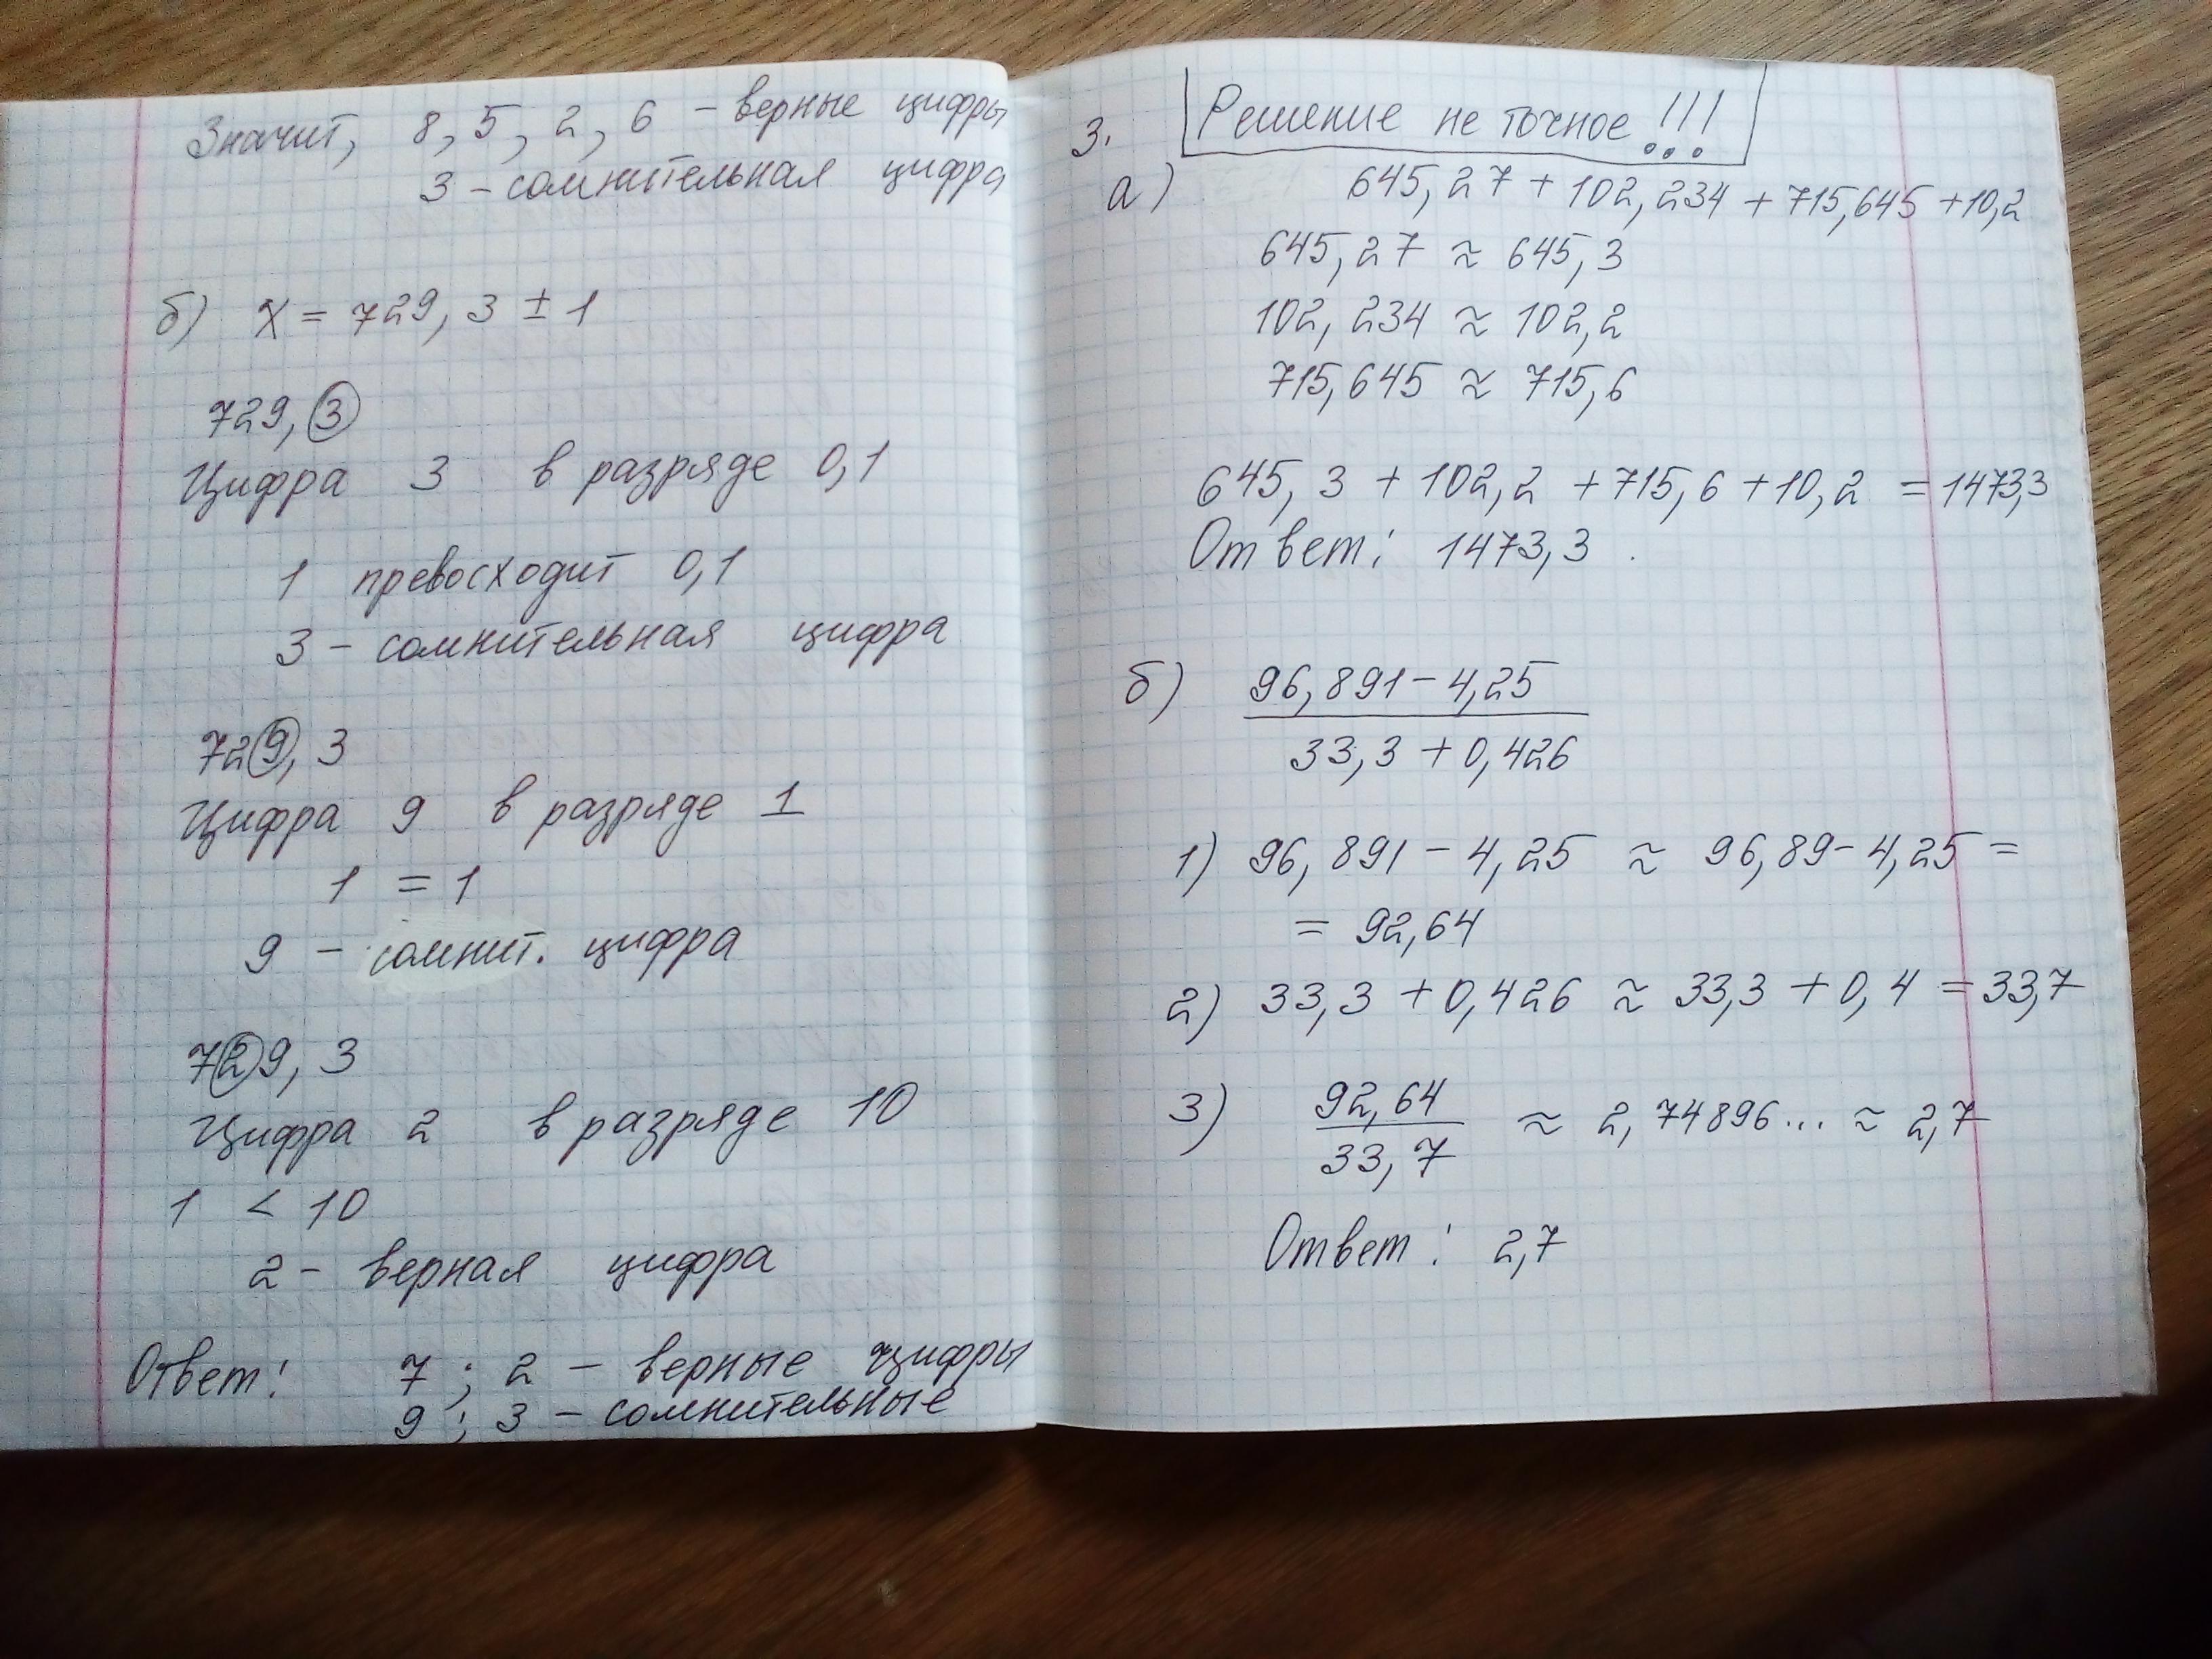 Значит, 8, 5, 2, 6 – верные цифры
3 – сомнительная цифра
б) x = 729,3 ± 1
729,3
Цифра 3 в разряде 0,1
1 превосходит 0,1
3 – сомнительная цифра
729,3
Цифра 9 в разряде 1
1 = 1
9 – сомнит. цифра
729,3
Цифра 2 в разряде 10
1 < 10
2 – верная цифра
Ответ: 7; 2 – верные цифры
9; 3 – сомнительные
3. Решение не точное!!!
а) 645,27 + 102,234 + 715,645 + 10,2
645,27 ≈ 645,3
102,234 ≈ 102,2
715,645 ≈ 715,6
645,3 + 102,2 + 715,6 + 10,2 = 1473,3
Ответ: 1473,3.
б) 96,891 – 4,25
33,3 + 0,426
1) 96,891 – 4,25 ≈ 96,89 – 4,25 =
= 92,64
2) 33,3 + 0,426 ≈ 33,3 + 0,4 = 33,7
3) 92,64
33,7 ≈ 2,74896... ≈ 2,7
Ответ: 2,7